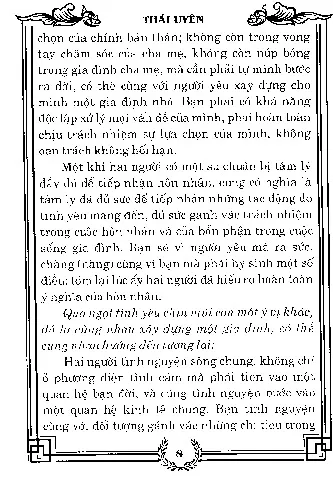 THÁI UYÊN
chọn của chính bản thân; không còn trong vòng
tay chăm sóc của cha mẹ, không còn núp bóng
trong gia đình cha mẹ, mà cần phải tự mình bước
ra đời, có thể cùng với người yêu xây dựng cho
mình một gia đình nhỏ. Bạn phải có khả năng
độc lập xử lý mọi vấn đề của mình, phải hoàn toàn
chịu trách nhiệm sự lựa chọn của mình, không
oán trách không hối hận.
Một khi hai người có một sự chuẩn bị tâm lý
đầy đủ để tiếp nhận hôn nhân, cũng có nghĩa là
tâm lý đã đủ sức để tiếp nhận những tác động do
tình yêu mang đến, đủ sức gánh vác trách nhiệm
trong cuộc hôn nhân và của bổn phận trong cuộc
sống gia đình. Bạn sẽ vì người yêu mà ra sức,
chàng (nàng) cũng vì bạn mà phải hy sinh một số
điều; tóm lại lúc ấy hai người đã hiểu rõ hoàn toàn
ý nghĩa của hôn nhân.
Quả ngọt tình yêu chín mùi còn một ý vị khác,
đó là cùng nhau xây dựng một gia đình, có thể
cùng nhau hướng đến tương lai:
Hai người tình nguyện sống chung, không chỉ
ở phương diện tình cảm mà phải tiến vào một
quan hệ bạn đời, và cùng tình nguyện bước vào
một quan hệ kinh tế chung. Bạn tình nguyện
cùng với đối tượng gánh vác những chi tiêu trong
8